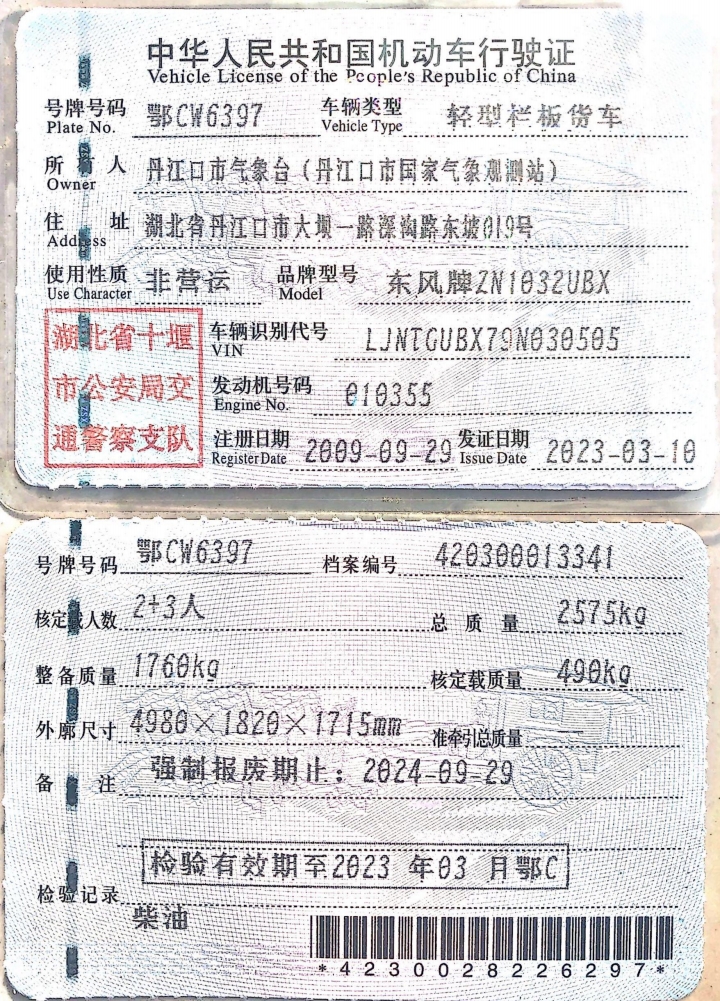 中华人民共和国机动车行驶证
Vehicle License of the People's Republic of China
号牌号码 鄂CW6397 车辆类型 轻型栏板货车
Plate No. Vehicle Type
所有人 丹江口市气象台（丹江口市国家气象观测站）
Owner
住址 湖北省丹江口市大坝一路深沟路东坡019号
Address
使用性质 非营运 品牌型号 东风牌ZN1032UBX
Use Character Model
湖北省十堰
市公安局交
通警察支队
车辆识别代号 LJNTGUBX79N030505
VIN
发动机号码 010355
Engine No.
注册日期 2009-09-29 发证日期 2023-03-10
Register Date Issue Date
号牌号码 鄂CW6397 档案编号 420300013341
核定载人数 2+3人 总质量 2575kg
整备质量 1760kg 核定载质量 490kg
外廓尺寸 4980×1820×1715mm 准牵引总质量 —
备注 强制报废期止：2024-09-29
检验有效期至2023 年03 月鄂C
检验记录
柴油
*4230028226297*